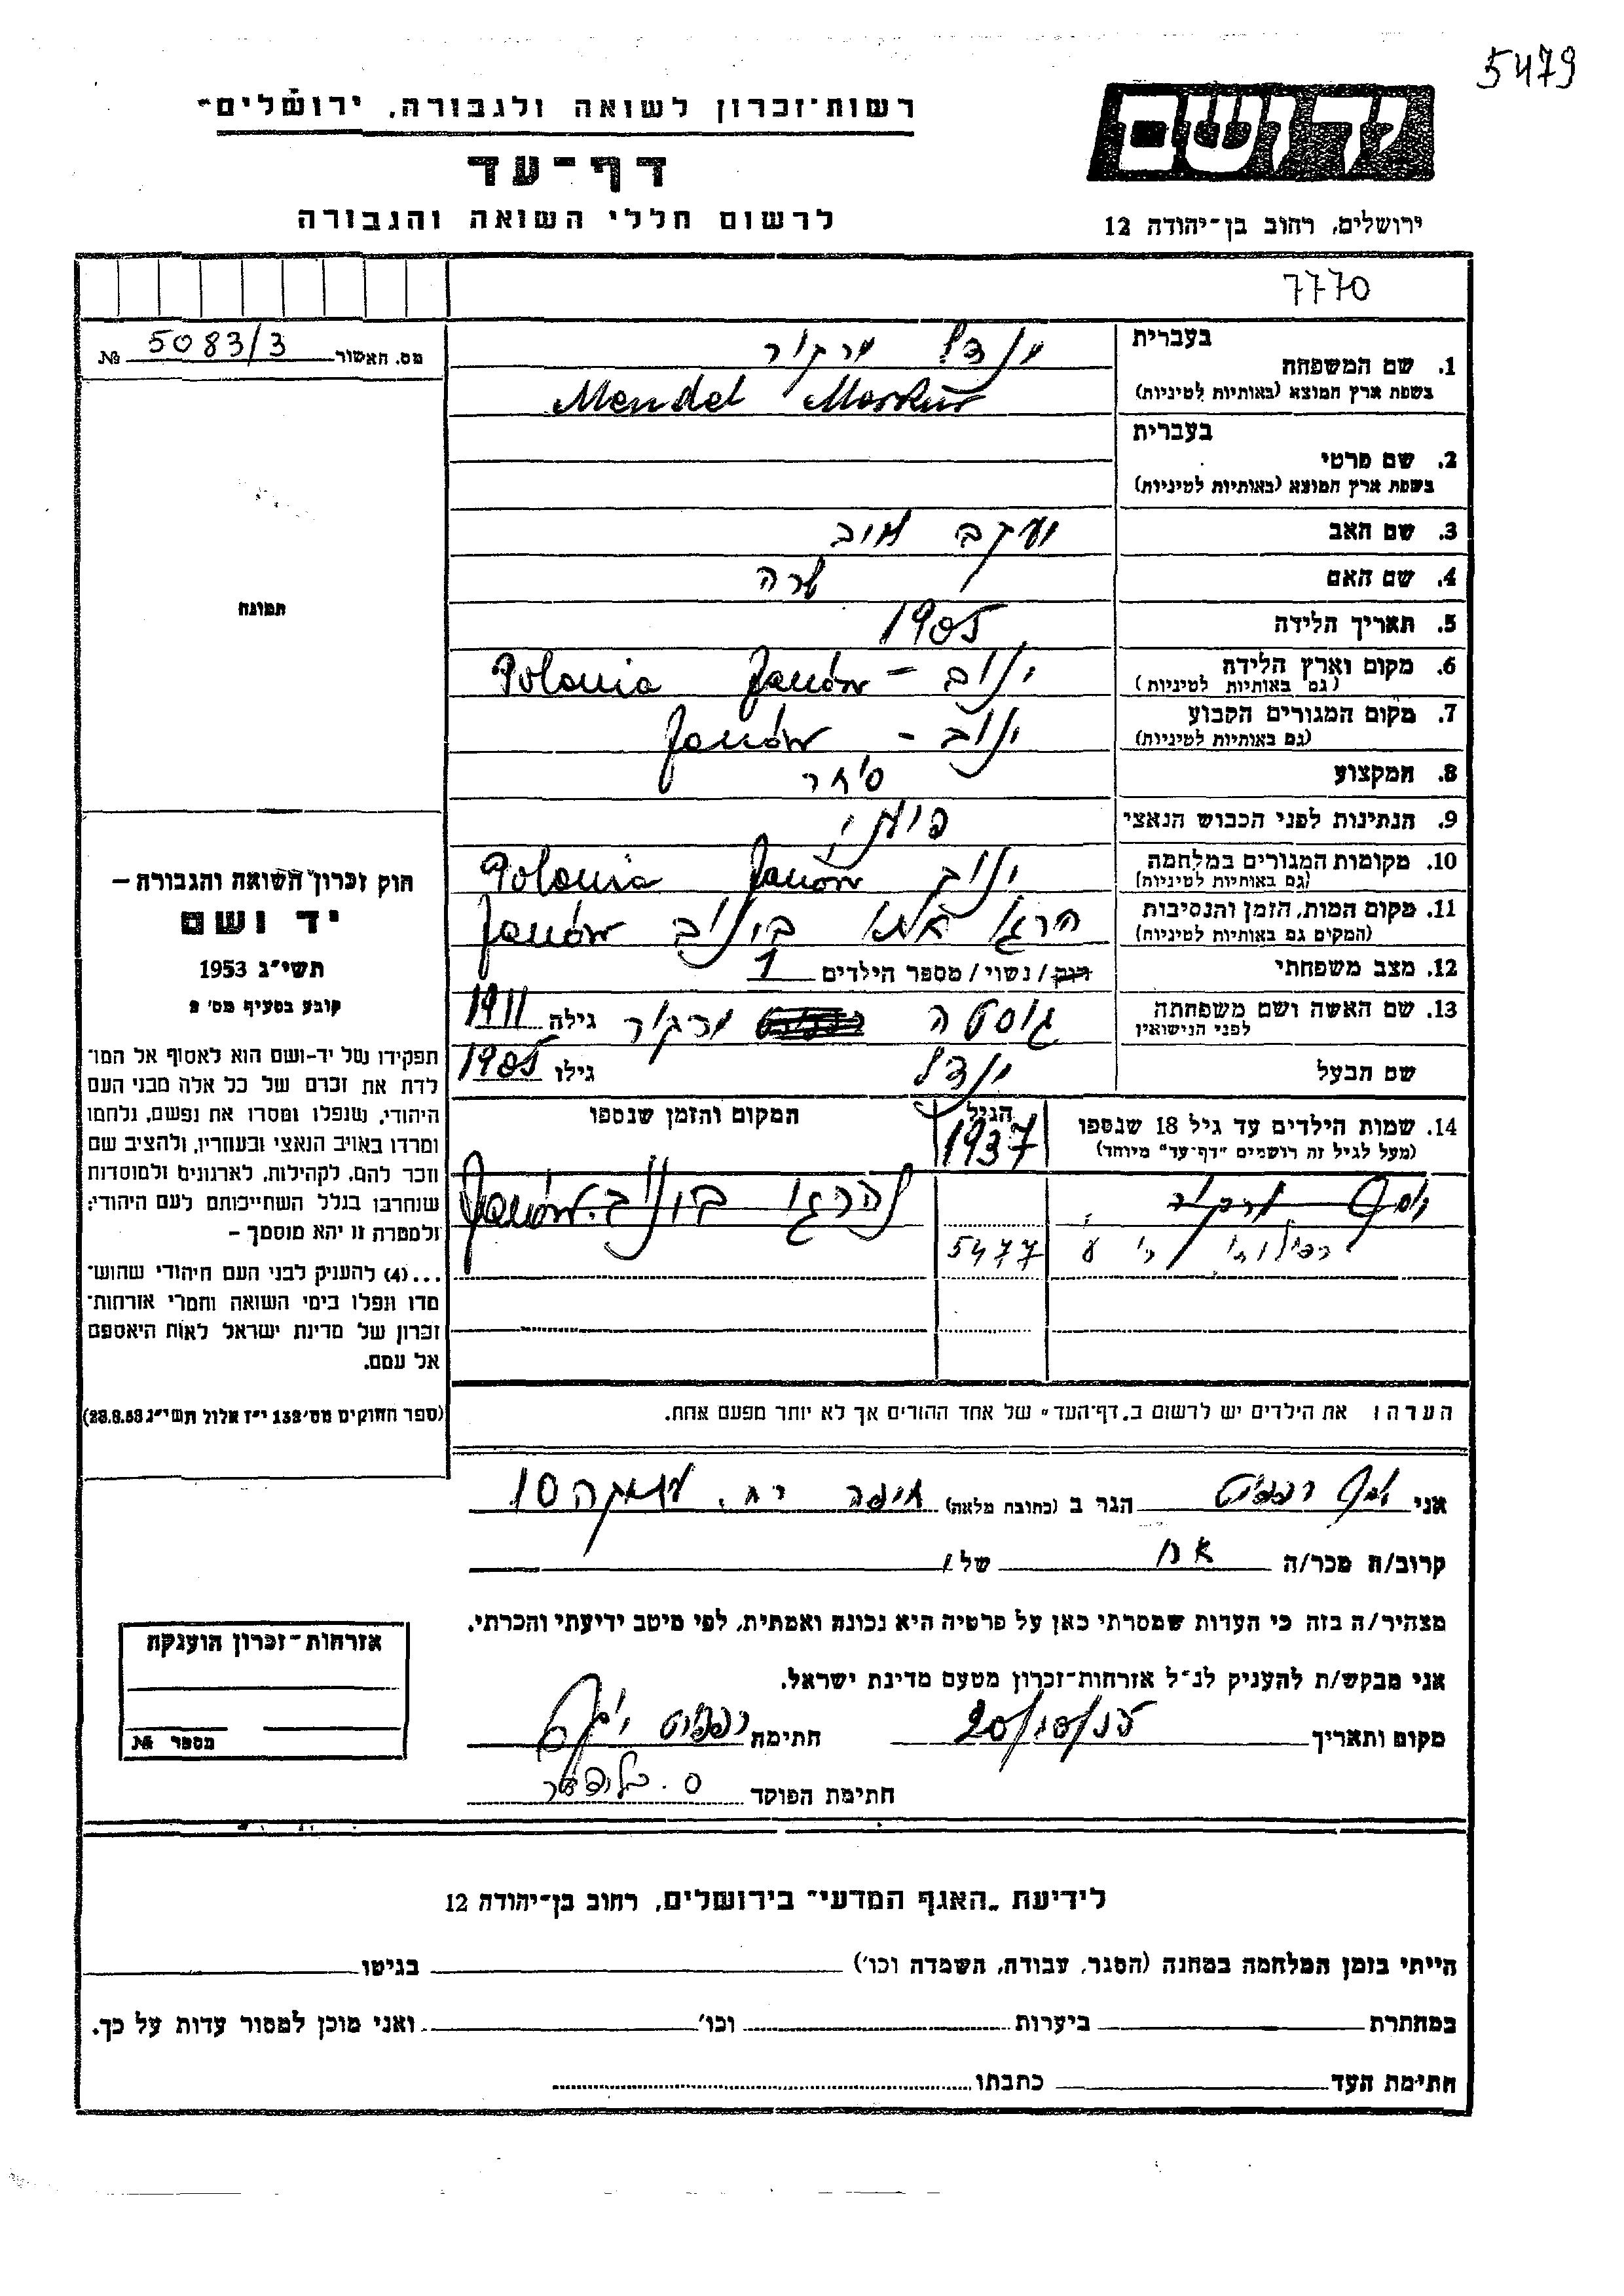 5479
יד ושם
ירושלים, רחוב בן־יהודה 12
רשות־זכרון לשואה ולגבורה, ירושלים
דף־עד
לרשום חללי השואה והגבורה
7770
מס. האשור 5083/3 №
בעברית
1. שם המשפחה
בשפת ארץ המוצא (באותיות לטיניות)
מנדל מרקור
Mendel Merkur
בעברית
2. שם פרטי
בשפת ארץ המוצא (באותיות לטיניות)
3. שם האב יעקב
4. שם האם שרה
5. תאריך הלידה 1905
6. מקום וארץ הלידה
(גם באותיות לטיניות)
ינוב - Janów Polonia
7. מקום המגורים הקבוע
(גם באותיות לטיניות)
ינוב - Janów
8. המקצוע סוחר
9. הנתינות לפני הכבוש הנאצי
10. מקומות המגורים במלחמה
(גם באותיות לטיניות)
ינוב Janów Polonia
11. מקום המות, הזמן והנסיבות
(המקום גם באותיות לטיניות)
בינוב Janów
12. מצב משפחתי רוק / נשוי / מספר הילדים 1
13. שם האשה ושם משפחתה
לפני הנישואין
גוסטה מרקור גילה 1911
שם הבעל מנדל גילו 1905
14. שמות הילדים עד גיל 18 שנספו
(מעל לגיל זה רושמים "דף־עד" מיוחד)
הגיל
המקום והזמן שנספו
1937
יוסף מרקור
נהרגו בינוב Janów
5477
הערה: את הילדים יש לרשום ב„דף־העד" של אחד ההורים אך לא יותר מפעם אחת.
תמונה
חוק זכרון השואה והגבורה –
יד ושם
תשי"ג 1953
קובע בסעיף מס' 2
תפקידו של יד-ושם הוא לאסוף אל המו־
לדת את זכרם של כל אלה מבני העם
היהודי, שנפלו ומסרו את נפשם, נלחמו
ומרדו באויב הנאצי ובעוזריו, ולהציב שם
וזכר להם, לקהילות, לארגונים ולמוסדות
שנחרבו בגלל השתייכותם לעם היהודי;
ולמטרה זו יהא מוסמך –
...(4) להעניק לבני העם היהודי שהוש־
מדו ונפלו בימי השואה והמרי אזרחות־
זכרון של מדינת ישראל לאות היאספם
אל עמם.
(ספר החוקים מס' 132 י"ז אלול תשי"ג 28.8.53)
אני הגר ב (כתובת מלאה) חיפה רח. 10
קרוב/ה מכר/ה אח של
מצהיר/ה בזה כי העדות שמסרתי כאן על פרטיה היא נכונה ואמתית, לפי מיטב ידיעתי והכרתי.
אני מבקש/ת להעניק לנ"ל אזרחות־זכרון מטעם מדינת ישראל.
מקום ותאריך 20/10/57 חתימה
חתימת הפוקד
אזרחות־זכרון הוענקה
מספר №
לידיעת „האגף המדעי" בירושלים, רחוב בן־יהודה 12
הייתי בזמן המלחמה במחנה (הסגר, עבודה, השמדה וכו') בגיטו
במחתרת ביערות וכו' ואני מוכן למסור עדות על כך.
חתימת העד כתבתו